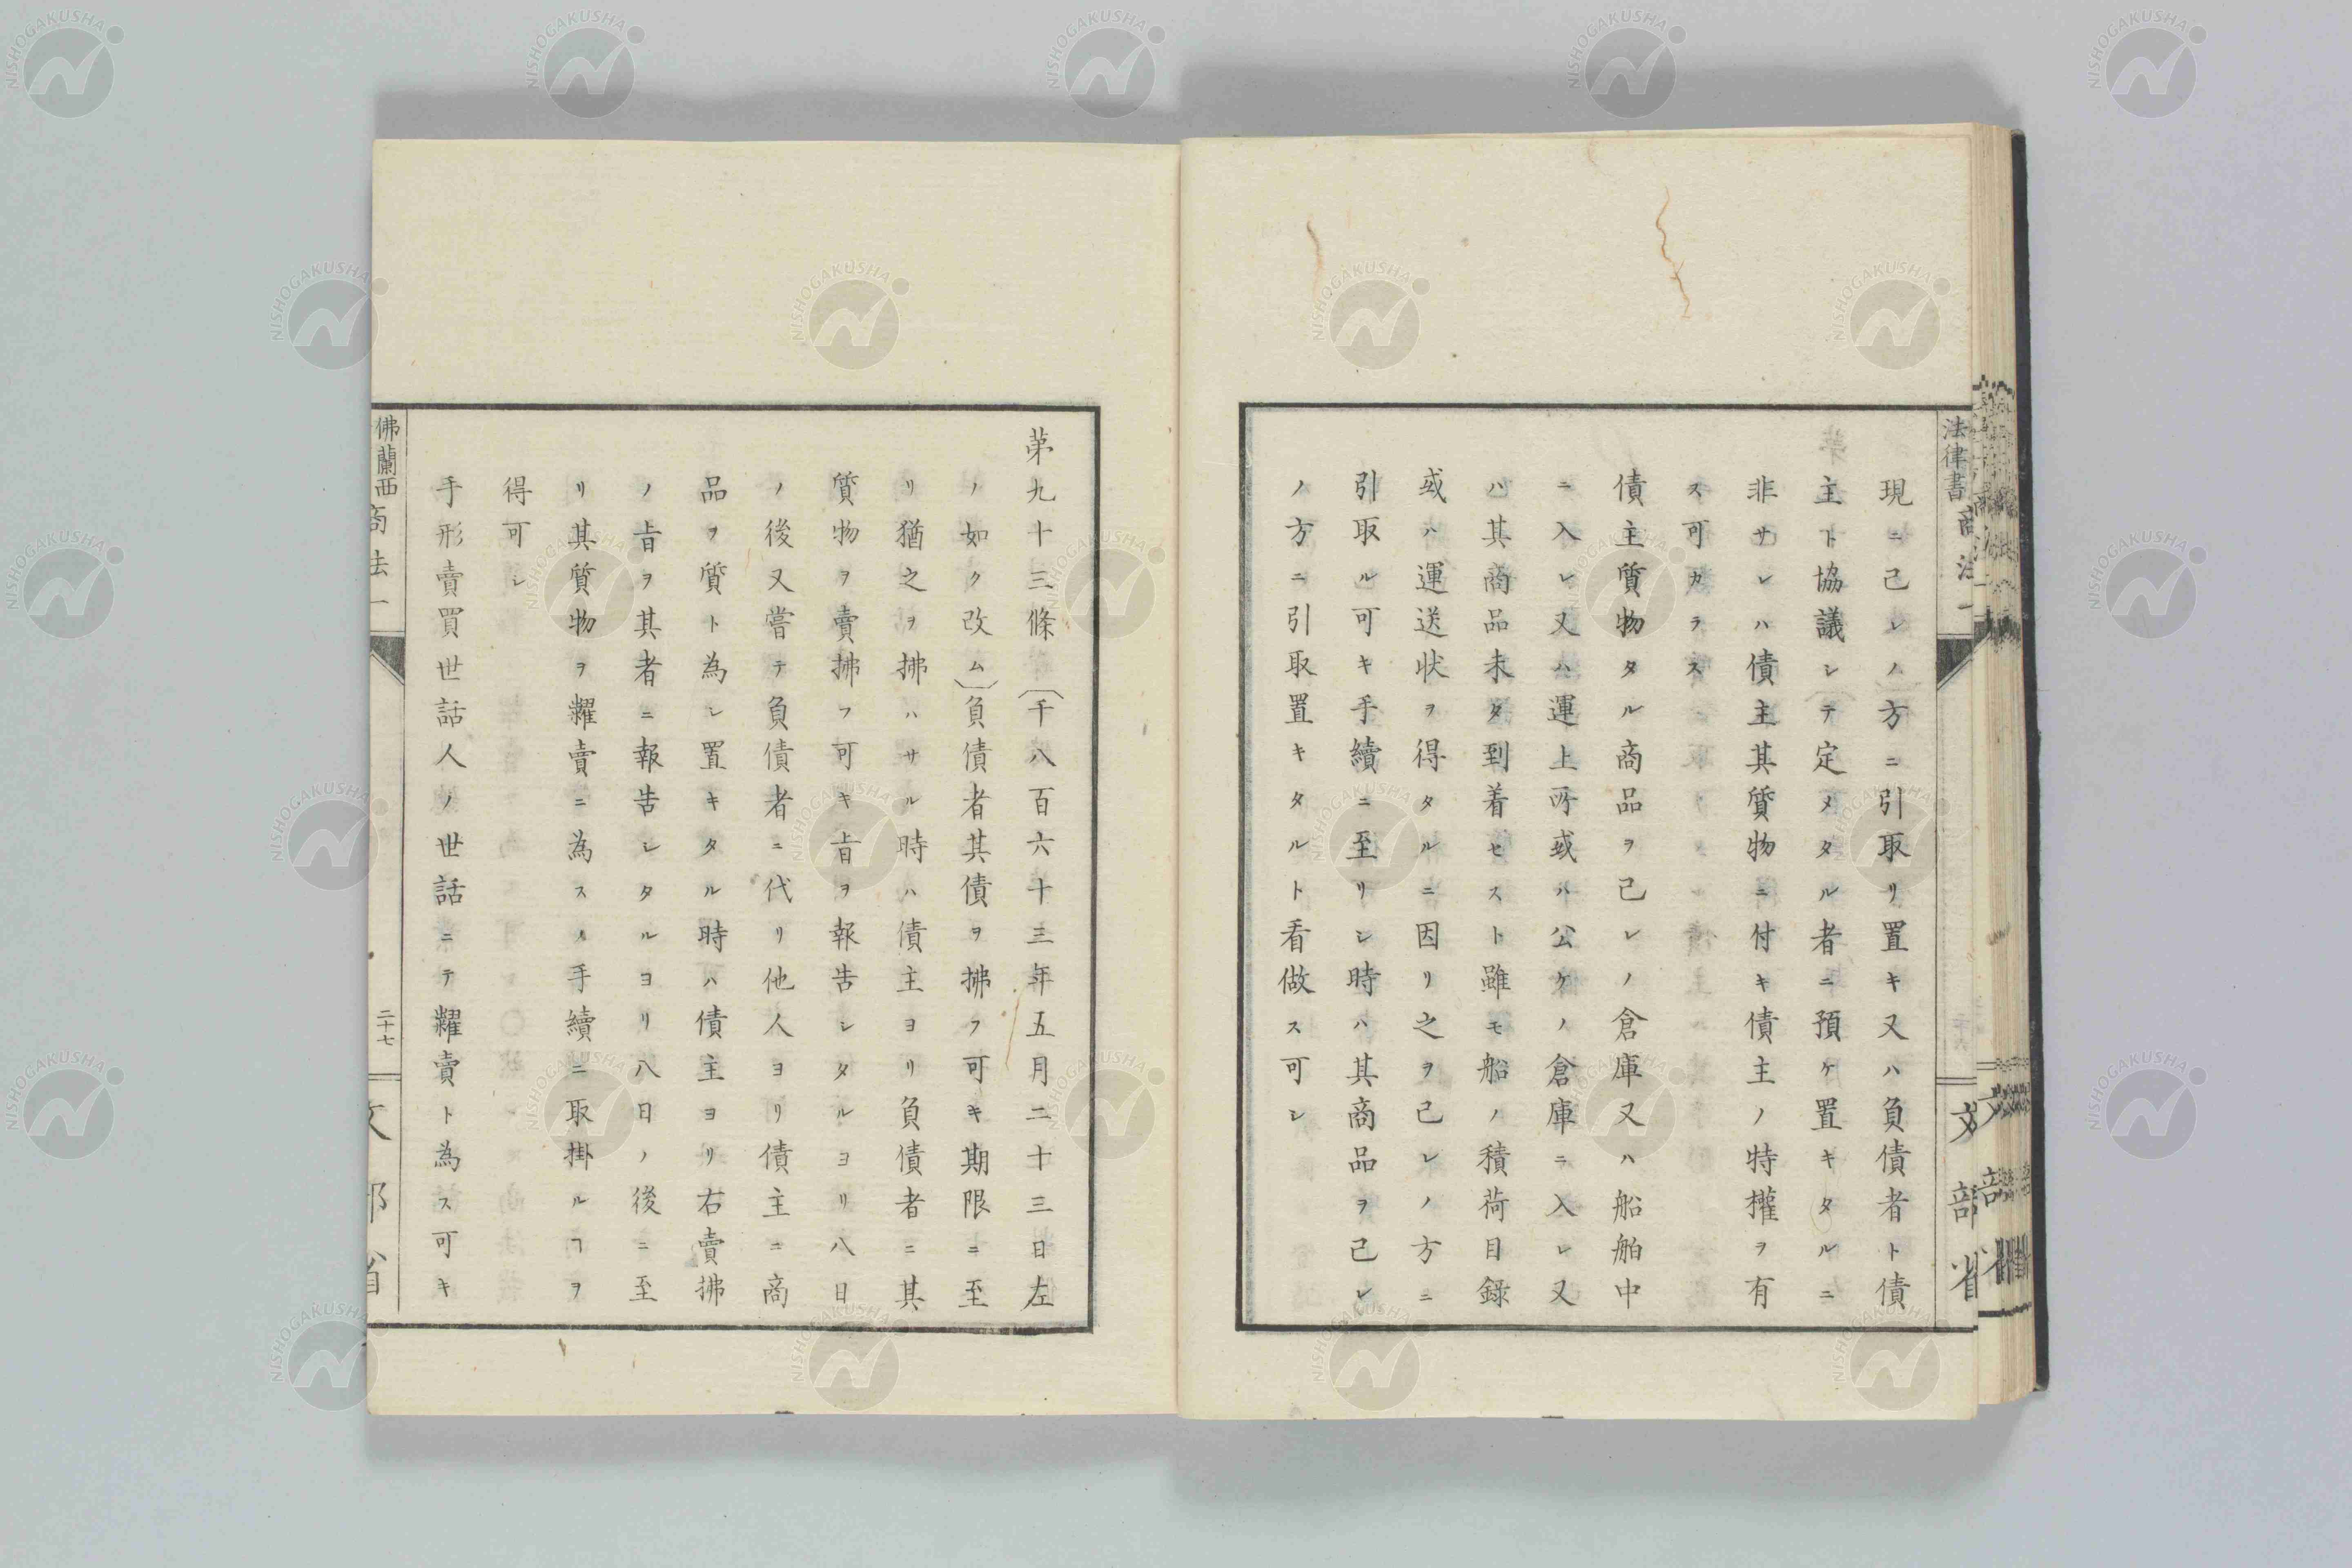 現ニ己レノ方ニ引取リ置キ又ハ負債者ト債
主ト協議シテ定メタル者ニ預ケ置キタルニ
非サレハ債主其質物ニ付キ債主ノ特權ヲ有
ス可カラス
債主質物タル商品ヲ己レノ倉庫又ハ船舶中
ニ入レ又ハ運上所或ハ公ケノ倉庫ニ入レ又
ハ其商品未タ到着セスト雖モ船ノ積荷目録
或ハ運送状ヲ得タルニ因リ之ヲ己レノ方ニ
引取ル可キ手續ニ至リシ時ハ其商品ヲ己レ
ノ方ニ引取置キタルト看做ス可シ
法律書 商法一
文部省
第九十三條(千八百六十三年五月二十三日左
ノ如ク改ム)負債者其債ヲ拂フ可キ期限ニ至
リ猶之ヲ拂ハサル時ハ債主ヨリ負債者ニ其
質物ヲ賣拂フ可キ旨ヲ報告シタルヨリ八日
ノ後又嘗テ負債者ニ代リ他人ヨリ債主ニ商
品ヲ質ト為シ置キタル時ハ債主ヨリ右賣拂
ノ旨ヲ其者ニ報告シタルヨリ八日ノ後ニ至
リ其質物ヲ糶賣ニ為スノ手續ニ取掛ルヿヲ
得可シ
手形賣買世話人ノ世話ニテ糶賣ト為ス可キ
佛蘭西商法一
二十七
文部省
NISHOGAKUSHA